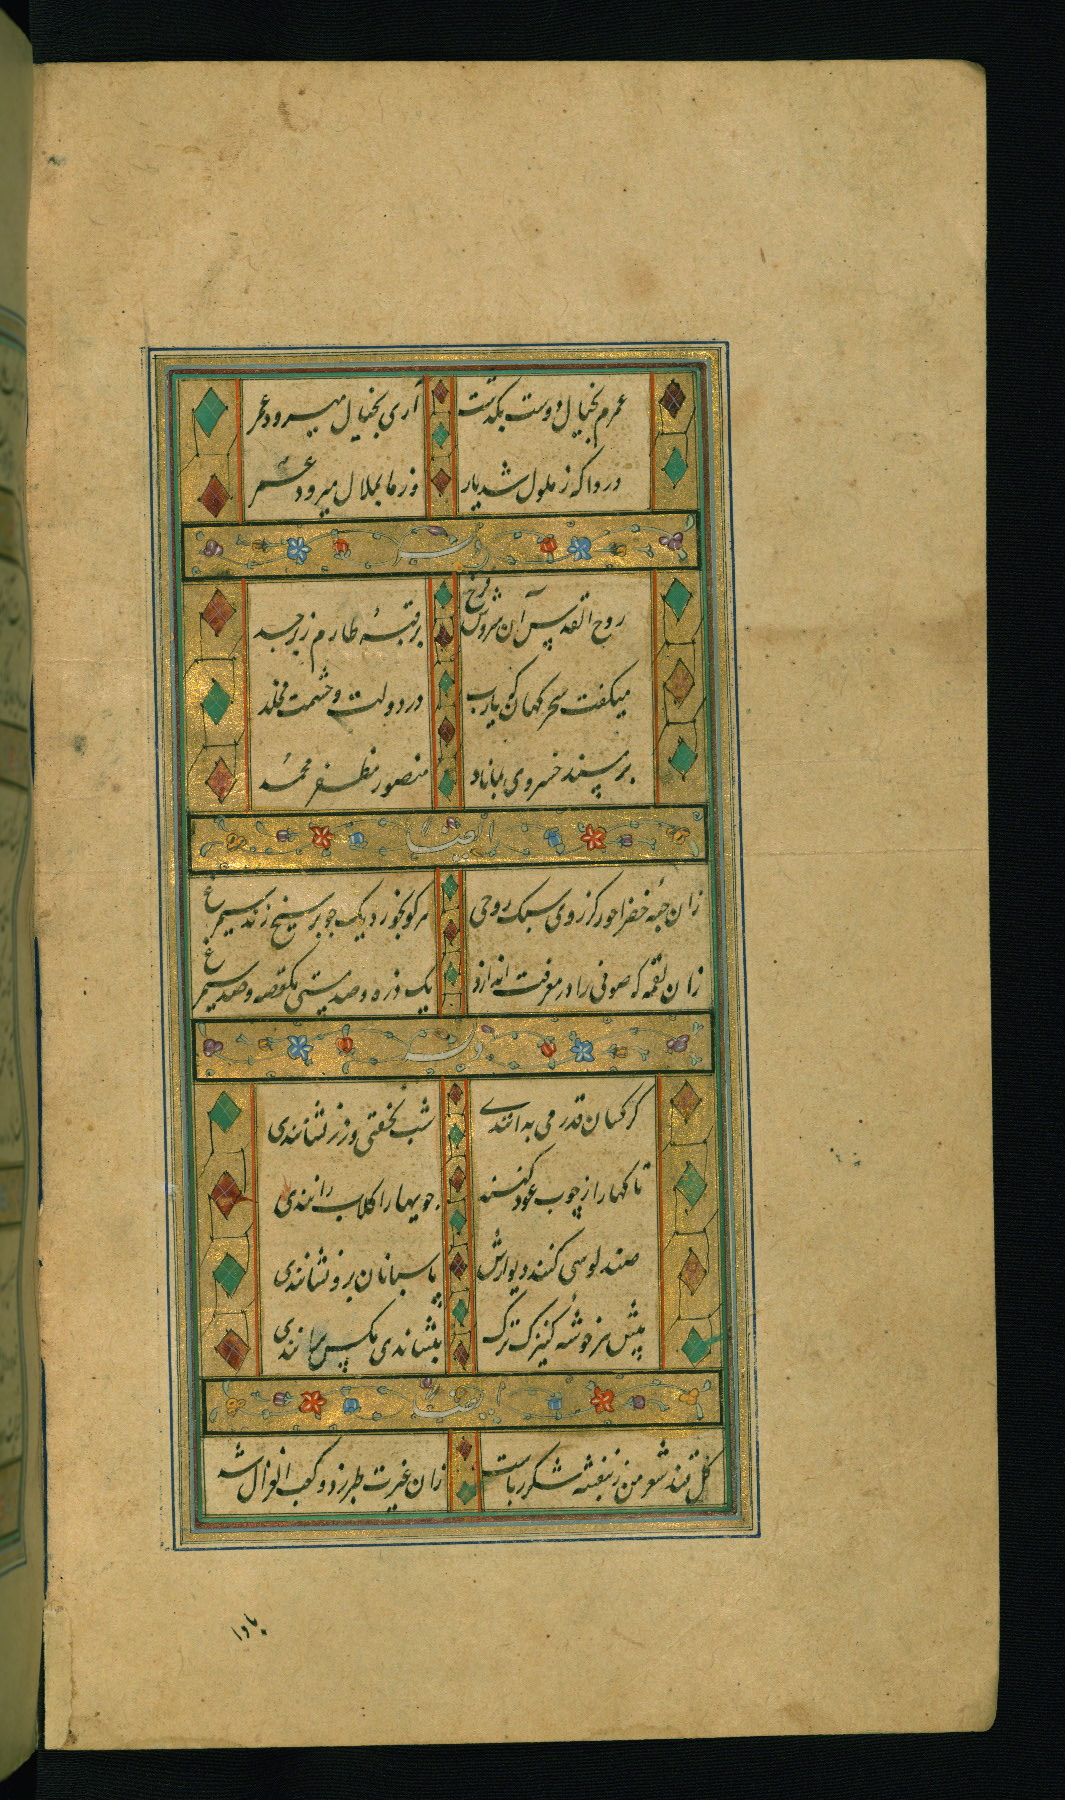 عمرم بخیال دوست بگذشت آری بخیال میرود عمر
دردا که ز ملول شد یار وز ما بملال میرود عمر
وله
روح القدس آن سروش فرخ بر قبهٔ طارم زبرجد
میگفت سحر کهان که یارب در دولت و حشمت مخلد
بر مسند خسروی بماناد منصور مظفر محمد
ایضا
زان حبهٔ خضرا خور کز روی سبک روحی هر کو بخورد یک جو بر سیخ زند سیمرغ
زان لقمه که صوفی را در معرفت اندازد یک ذره و صد مستی یک و صد سیمرغ
وله
گر کسان قدر می بدانندی شب نخفتی و رز نشانندی
تاکها را از چوب عود کنند جویها را گلاب رانندی
کنند دیوارش پاسبانان برو نشانندی
پیش هر خوشه کنیزک ترک بنشاندی مگس پرانندی
ایضا
گل قند شعر من ز بنفشه شکر رباست زان غیرت طبرزد و کعب الغزال شد
بادا